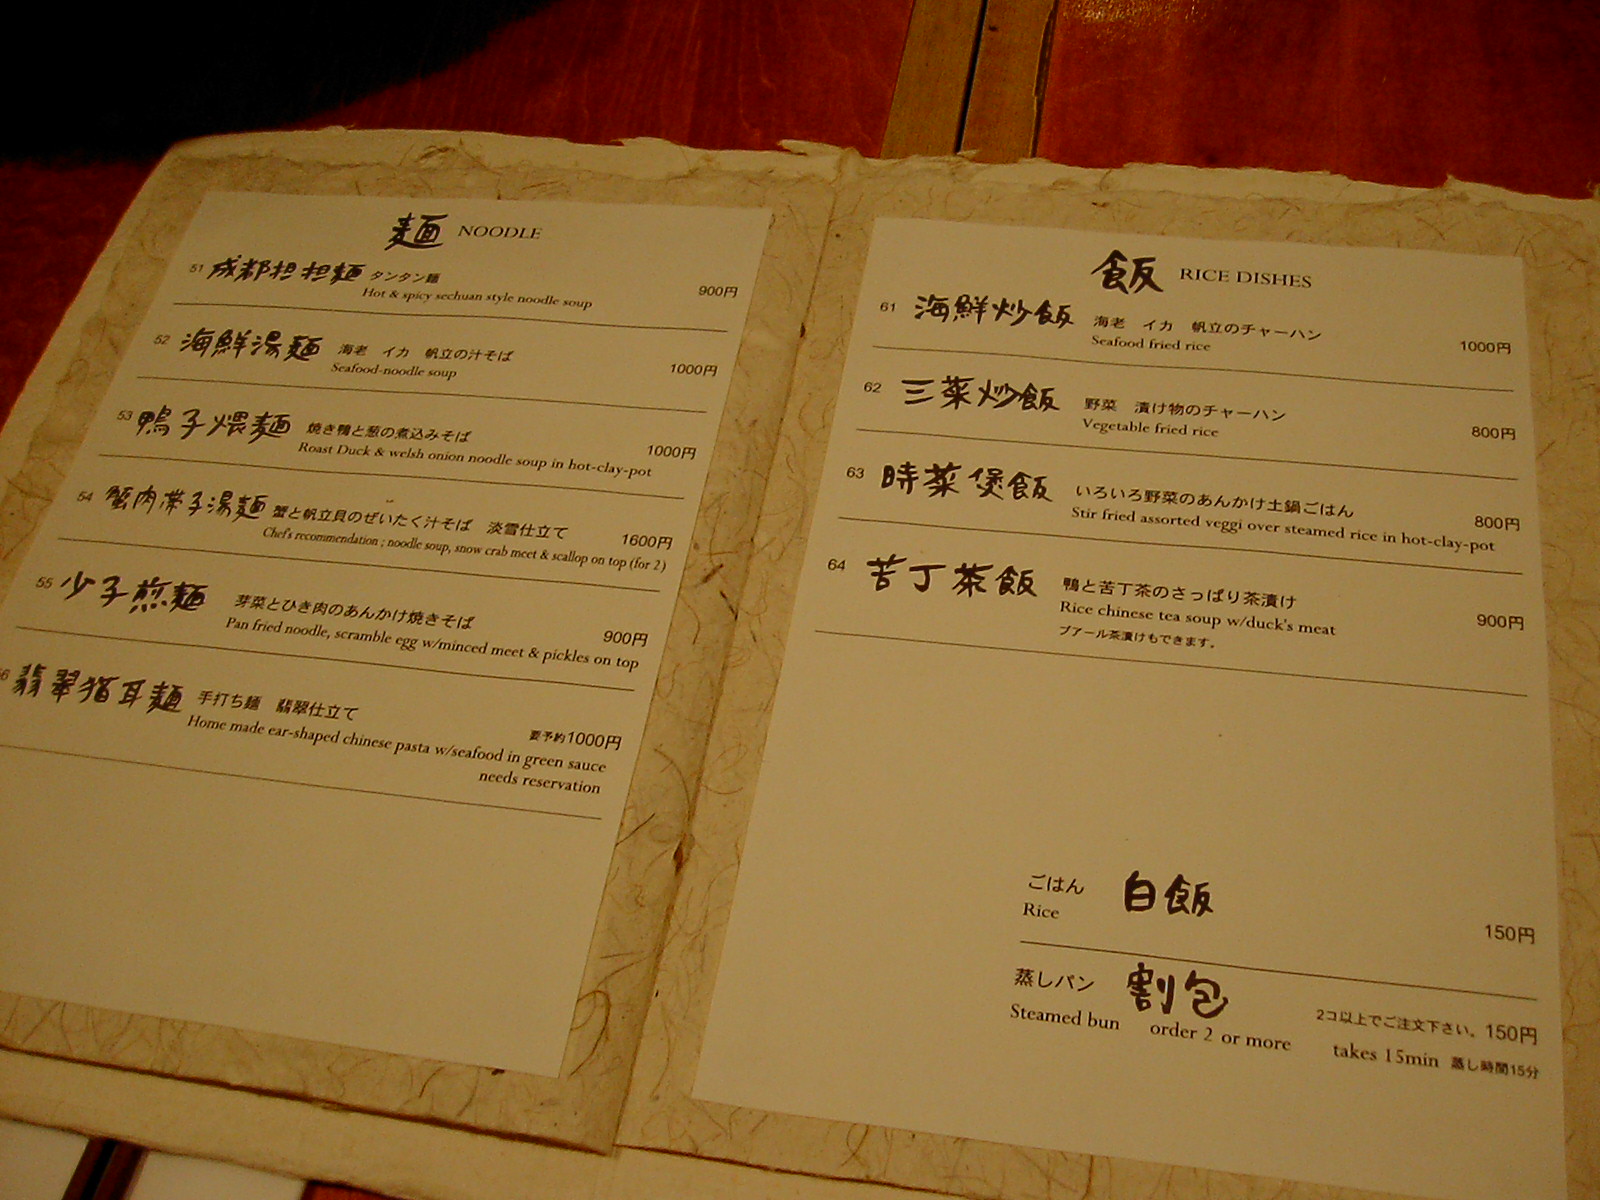 麺 NOODLE
51 成都担担麺 タンタン麺
Hot & spicy sechuan style noodle soup 900円
52 海鮮湯麺 海老 イカ 帆立の汁そば
Seafood-noodle soup 1000円
53 鴨子煨麺 焼き鴨と葱の煮込みそば
Roast Duck & welsh onion noodle soup in hot-clay-pot 1000円
54 蟹肉帯子湯麺 蟹と帆立貝のぜいたく汁そば 淡雪仕立て 1600円
Chef's recommendation ; noodle soup, snow crab meet & scallop on top (for 2)
55 少子煎麺 芽菜とひき肉のあんかけ焼きそば 900円
Pan fried noodle, scramble egg w/minced meet & pickles on top
6 翡翠猫耳麺 手打ち麺 翡翠仕立て 要予約1000円
Home made ear-shaped chinese pasta w/seafood in green sauce
needs reservation
飯 RICE DISHES
61 海鮮炒飯 海老 イカ 帆立のチャーハン
Seafood fried rice 1000円
62 三菜炒飯 野菜 漬け物のチャーハン
Vegetable fried rice 800円
63 時菜煲飯 いろいろ野菜のあんかけ土鍋ごはん 800円
Stir fried assorted veggi over steamed rice in hot-clay-pot
64 苦丁茶飯 鴨と苦丁茶のさっぱり茶漬け
Rice chinese tea soup w/duck's meat 900円
プアール茶漬けもできます。
ごはん 白飯
Rice 150円
蒸しパン 割包 2コ以上でご注文下さい。150円
Steamed bun order 2 or more takes 15min 蒸し時間15分